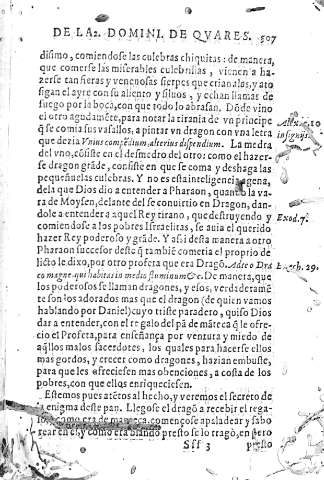 DE LA 2. DOMINI. DE QVARES. 507
disimo, comiendose las culebras chiquitas: de manera,
que comerse las miserables culebrillas, vienen a ha-
zerse tan fieras y venenosas sierpes que crian alas, y ato
sigan el ayre con su aliento y siluos, y echan llamas de
fuego por la boca, con que todo lo abrasan. Dōde vino
el otro agudamēte, para notar la tirania de vn principe
q̄ se comia sus vasallos, a pintar vn dragon con vna letra
que dezia Vnius compēdium, alterius dispendium. La medra
del vno, cōsiste en el desmedro del otro: como el hazer-
se dragon grāde, consiste en que se coma y deshaga las
pequeñuelas culebras. Y no es esta inteligencia agena,
de la que Dios dio a entender a Pharaon, quando la va-
ra de Moysen, delante del se conuirtio en Dragon, dan-
dole a entender a aquel Rey tirano, que destruyendo y
comiendose a los pobres Israelitas, se auia el querido
hazer Rey poderoso y grāde. Y assi desta manera a otro
Pharaon successor deste q̄ tambiē cometia el proprio de
licto le dixo, por otro profeta que era Dragō. Ad te o Dra
co magne. qui habitas in medio fluminum &c. De manera, que
los poderosos se llaman dragones, y esos, verdaderamē
te son los adorados mas que el dragon (de quien vamos
hablando por Daniel) cuyo triste paradero, quiso Dios
dar a entender, con el regalo del pā de māteca q̄ le ofre-
cio el Profeta, para enseñança por ventura y miedo de
aq̄llos malos sacerdotes, los quales para hazerse ellos
mas gordos, y crecer como dragones, hazian embuste,
para que les ofreciesen mas obenciones, a costa de los
pobres, con que ellos enriqueciesen.
Estemos pues atētos al hecho, y veremos el secreto de
la enigma deste pan. Llegose el dragō a recebir el rega-
lo, y como era de manteca, començose apaladear y sabo
rear en el, y como era blando presto se lo tragò, en pero
Sff 3 presto
insignijs.
Exod. 7.
Ezech. 29.